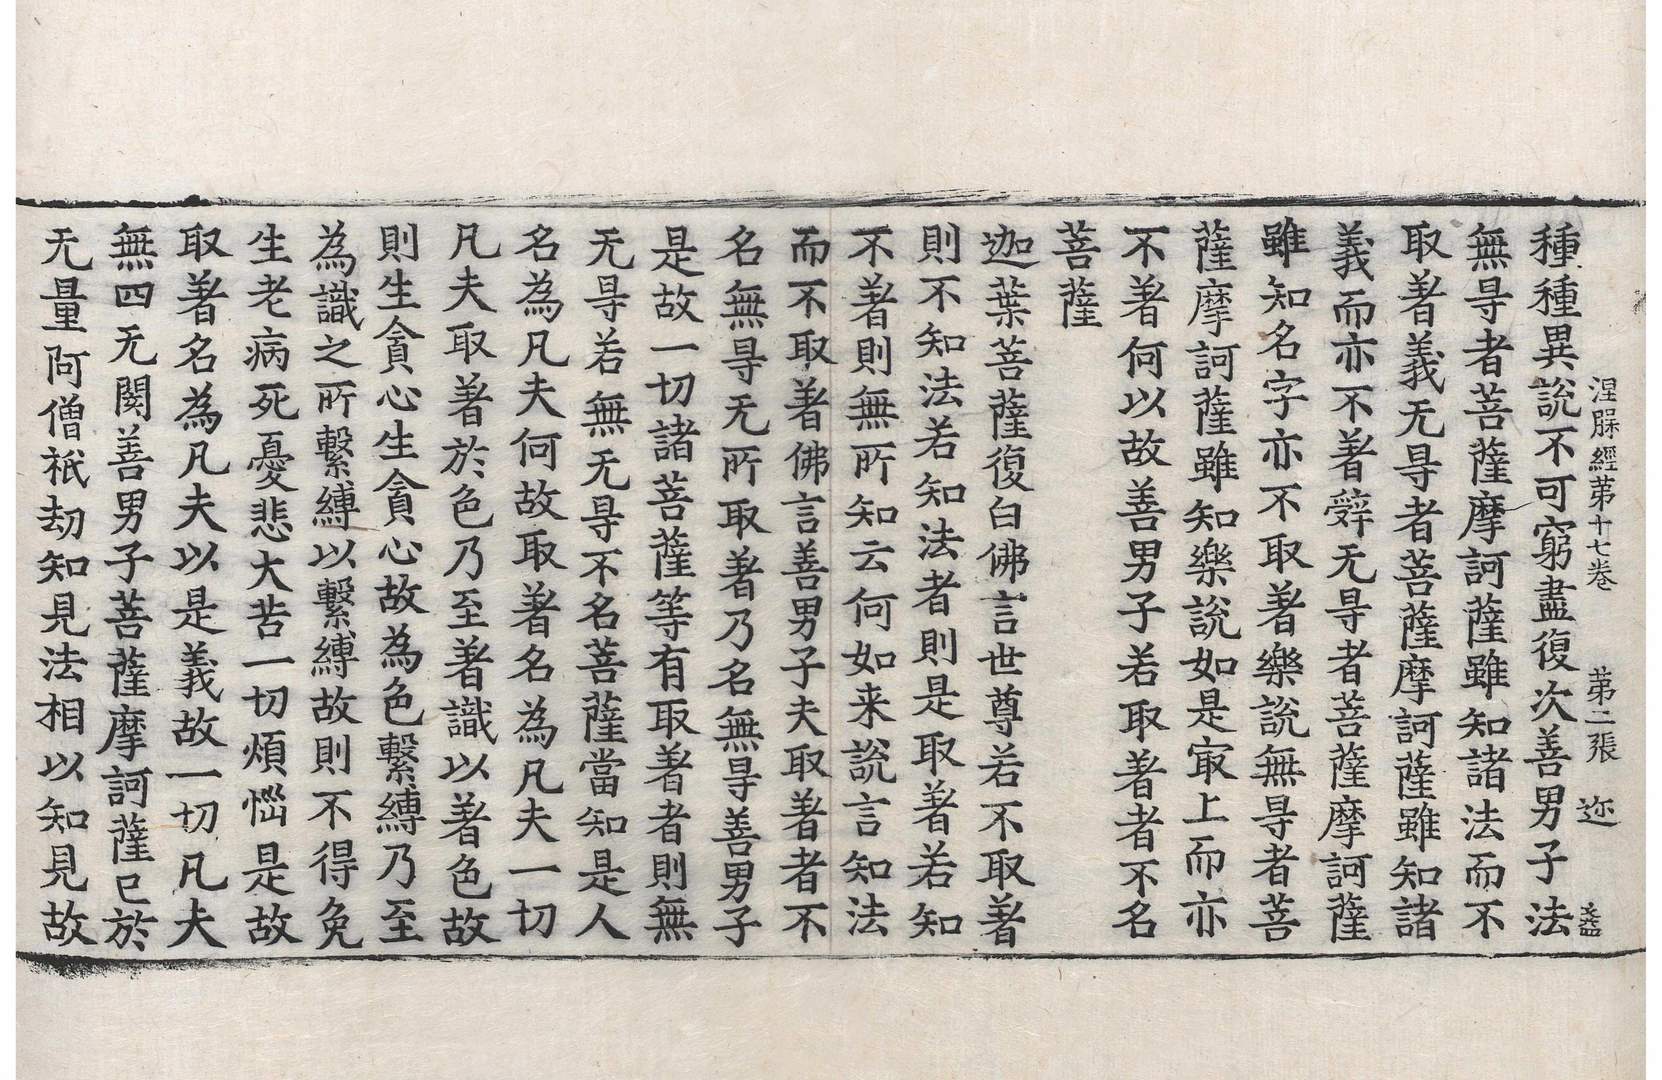 涅槃經苐十七卷　苐二張　迩
種種異說不可窮盡復次善男子法
無㝵者菩薩摩訶薩雖知諸法而不
取著義无㝵者菩薩摩訶薩雖知諸
義而亦不著辤无㝵者菩薩摩訶薩
雖知名字亦不取著樂說無㝵者菩
薩摩訶薩雖知樂說如是㝡上而亦
不著何以故善男子若取著者不名
菩薩
迦葉菩薩復白佛言世尊若不取著
則不知法若知法者則是取著若知
不著則無所知云何如来說言知法
而不取著佛言善男子夫取著者不
名無㝵无所取著乃名無㝵善男子
是故一切諸菩薩等有取著者則無
无㝵若無无㝵不名菩薩當知是人
名為凡夫何故取著名為凡夫一切
凡夫取著於色乃至著識以著色故
則生貪心生貪心故為色繫縛乃至
為識之所繫縛以繫縛故則不得免
生老病死憂悲大苦一切煩惱是故
取著名為凡夫以是義故一切凡夫
無四无閡善男子菩薩摩訶薩已於
无量阿僧祇劫知見法相以知見故